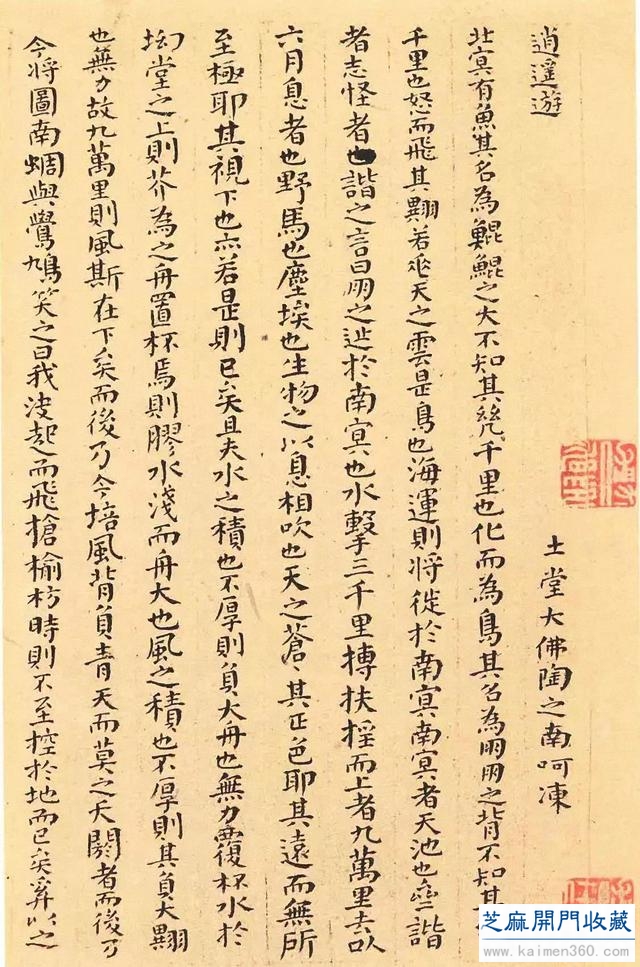 逍遥遊 土堂大佛陶之南呵凍
北冥有魚其名為鯤鯤之大不知其幾千里也化而為鳥其名為朋朋之背不知其
千里也怒而飛其翼若垂天之雲是鳥也海運則將徙於南冥南冥者天池也齊諧
者志怪者也諧之言曰朋之徙於南冥也水擊三千里摶扶揺而上者九萬里去以
六月息者也野馬也塵埃也生物之以息相吹也天之蒼〻其正色耶其遠而無所
至極耶其視下也亦若是則已矣且夫水之積也不厚則負大舟也無力覆杯水於
坳堂之上則芥為之舟置杯焉則膠水淺而舟大也風之積也不厚則其負大翼
也無力故九萬里則風斯在下矣而後乃今培風背負青天而莫之夭閼者而後乃
今將圖南蜩與鷽鳩笑之曰我决起而飛槍榆枋時則不至控於地而已矣奚以之
芝麻開門收藏
www.kaimen360.com